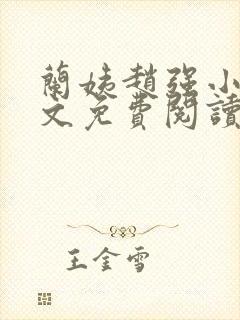 蘭姨趙强小
文免費閱讀
王金雪